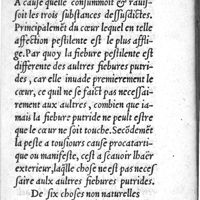 A cause quelle consummoit & rauis-
soit les trois substances dessusdictes.
Principalemẽt du cœur lequel en telle
affection pestilente est le plus afflí-
gé. Par quoy la fiebure pestilente est
differente des aultres fiebures putri-
des, car elle inuade premierement le
cœur, ce quil ne se faict pas necessai-
rement aux aultres, combien que ia-
mais la fiebure putride ne peult estre
que le cœur ne soit touche. Secõdemẽt
la peste a tousiours cause procatarti-
que ou manifeste, cest a scauoir lhaër
exterieur, laq̃lle chose ne est pas neces
saire aulx aultres fiebures putrides.
De six choses non naturelles